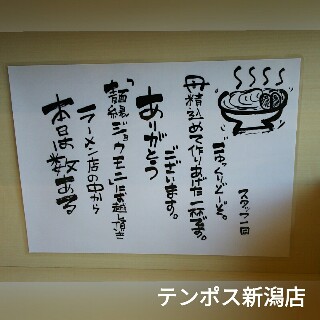 本日は数ある
ラーメン店の中から
「麺縁ジョウモン」にお越し頂き
ありがとう
ございます。
丹精込めて作りあげた一杯です。
ごゆっくりどーぞ。
スタッフ一同
テンポス新潟店